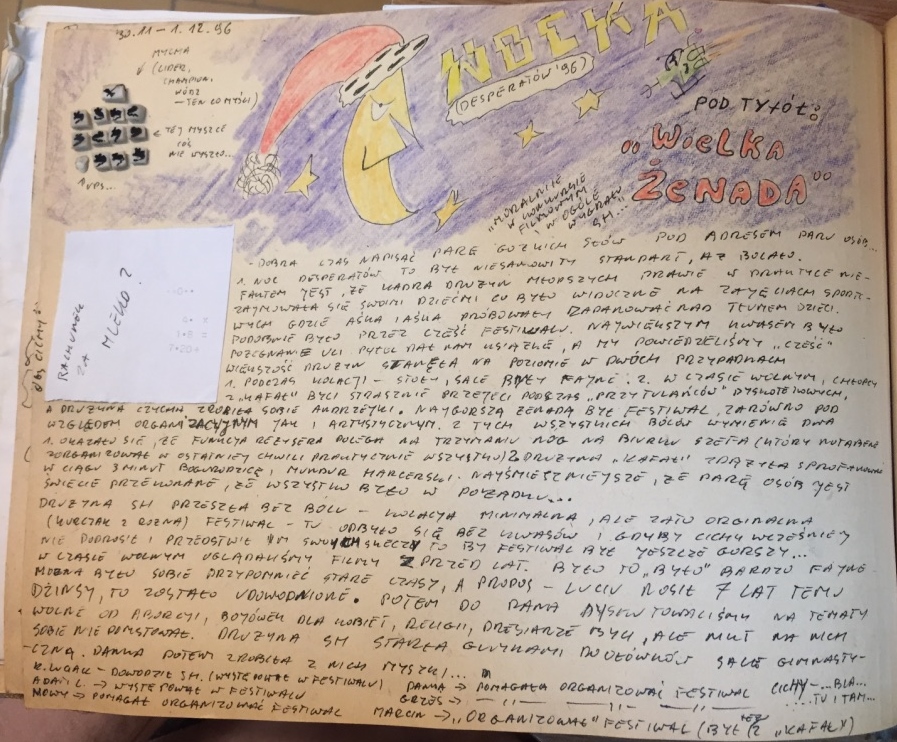 30.11 – 1.12.96
NOCKA
(DESPERATÓW '96)
POD TYTÓŁ:
"WIELKA ŻENADA"
MYSZKA
(LIDER,
CHAMPION,
WÓDZ
– TEN CO MYŚLI)
← TEJ MYSZCE
COŚ
NIE WYSZŁO...
UPS...
"MORALNIE
W KONKURSIE
FILMOWYM
I W OGÓLE
WYGRAŁO
SH..."
RACHUNEK
ZA MLEKO?
– DOBRA CZAS NAPISAĆ PARĘ GORZKICH SŁÓW POD ADRESEM PARU OSÓB...
1. NOC DESPERATÓW TO BYŁ NIESAMOWITY STANDART, AŻ BOLAŁO.
FAKTEM JEST, ŻE KADRA DRUŻYN MŁODSZYCH PRAWIE W PRAKTYCE NIE-
ZAJMOWAŁA SIĘ SWOIMI DZIEĆMI CO BYŁO WIDOCZNE NA ZAJĘCIACH SPORTO-
WYCH GDZIE AŚKA I AŚKA PRÓBOWAŁY ZAPANOWAĆ NAD TŁUMEM DZIECI.
PODOBNIE BYŁO PRZEZ CZĘŚĆ FESTIWALU. NAJWIĘKSZYM KWASEM BYŁO
POŻEGNANIE ULI DAŁ NAM KSIĄŻKĘ, A MY POWIEDZIELIŚMY "CZEŚĆ"
WIĘKSZOŚĆ DRUŻYN STANĘŁA NA POZIOMIE W DWÓCH PRZYPADKACH
1. PODCZAS KOLACJI – STOŁY, SALE BYŁY FAJNE. 2. W CZASIE WOLNYM, CHŁOPCY
Z "KAFAŁ" BYLI STRASZNIE PRZEJĘCI PODCZAS "PRZYTULAŃCÓW" DYSKOTEKOWYCH,
A DRUŻYNA CZYCHA ZROBIŁA SOBIE ANDRZEJKI. NAJGORSZĄ ŻENADĄ BYŁ FESTIWAL, ZARÓWNO POD
WZGLĘDEM ORGANIZACYJNYM JAK I ARTYSTYCZNYM. Z TYCH WSZYSTKICH BÓLÓW WYMIENIĘ DWA
1. OKAZAŁO SIĘ, ŻE FUNKCJA REŻYSERA POLEGA NA TRZYMANIU NÓG NA BIURKU SZEFA (KTÓRY NOTABENE
ZORGANIZOWAŁ W OSTATNIEJ CHWILI PRAKTYCZNIE WSZYSTKO) 2. DRUŻYNA "KAFAŁ" ZDĄŻYŁA SPROFANOWAĆ
W CIĄGU 3 MINUT BOGURODZICĘ, MUNDUR HARCERSKI. NAJŚMIESZNIEJSZE, ŻE PARĘ OSÓB JEST
ŚWIĘCIE PRZEKONANE, ŻE WSZYSTKO BYŁO W PORZĄDKU...
DRUŻYNA SH PRZESZŁA BEZ BÓLU – KOLACJA MINIMALNA, ALE ZATO ORGINALNA
(KURCZAK Z ROŻNA) FESTIWAL – TU ODBYŁO SIĘ BEZ KWASÓW I GDYBY CICHY WCZEŚNIEJ
NIE I SWOICH SKECZY TO BY FESTIWAL BYŁ JESZCZE GORSZY...
W CZASIE WOLNYM OGLĄDALIŚMY FILMY Z PRZED LAT. BYŁO TO "BYŁO" BARDZO FAJNE.
MOŻNA BYŁO SOBIE PRZYPOMNIEĆ STARE CZASY, A PROPOS – LUCIU NOSIŁ 7 LAT TEMU
DŻINSY, TO ZOSTAŁO UDOWODNIONE. POTEM DO RANA DYSKUTOWALIŚMY NA TEMATY
WOLNE OD ABORCJI, BOJÓWEK DLA KOBIET, RELIGII, DRESIARZE BYLI, ALE NIKT NA NICH
SOBIE NIE POMSTOWAŁ. DRUŻYNA SH STARŁA GUMKAMI DO OŁÓWKÓW SALĘ GIMNASTY-
CZNĄ. DANKA POTEM ZROBIŁA Z NICH MYSZKI...
K. WGAK – DOWODZIŁ SH. (WYSTĘPOWAŁ W FESTIWALU) DANKA → POMAGAŁA ORGANIZOWAĆ FESTIWAL CICHY → ..BLA...
ADAŚ L → WYSTĘPOWAŁ W FESTIWALU GRZEŚ → —〃— —〃— —〃— ...TU I TAM...
NOWY → POMAGAŁ ORGANIZOWAĆ FESTIWAL MARCIN → "ORGANIZOWAŁ" FESTIWAL (BYŁ TEŻ Z "KAFAŁ")